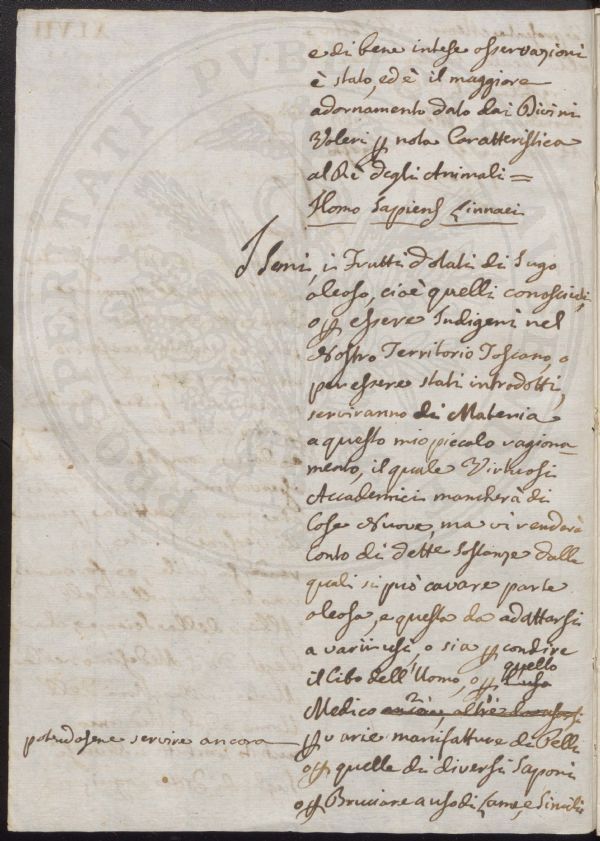 e di bene intese osservazioni
è stato, ed è il maggiore
adornamento dato dai Divini
Voleri p nota Caratteristica
al Rè degli Animali =
Homo Sapiens Linnaei
I Semi, ii Frutti dotati di Sugo
oleoso, cioè quelli conosciuti,
o p essere Indigeni nel
Nostro Territorio Toscano, o
per essere stati introdotti,
serviranno di Materia
a questo mio piccolo ragiona=
mento, il quale Virtuosi
Accademici mancherà di
Cose Nuove, ma vi renderà
Conto di dette Sostanze dalle
quali si può cavare parte
oleosa, e questa da adattarsi
a varii usi, o sia p condire
il Cibo dell'Uomo, o p quello
Medico
potendosene servire ancora
p varie manifatture di Pelli
o p quelle di diversi Saponi
o p Bruciare a uso di Lame, e Simili
PROSPERITATI PVB